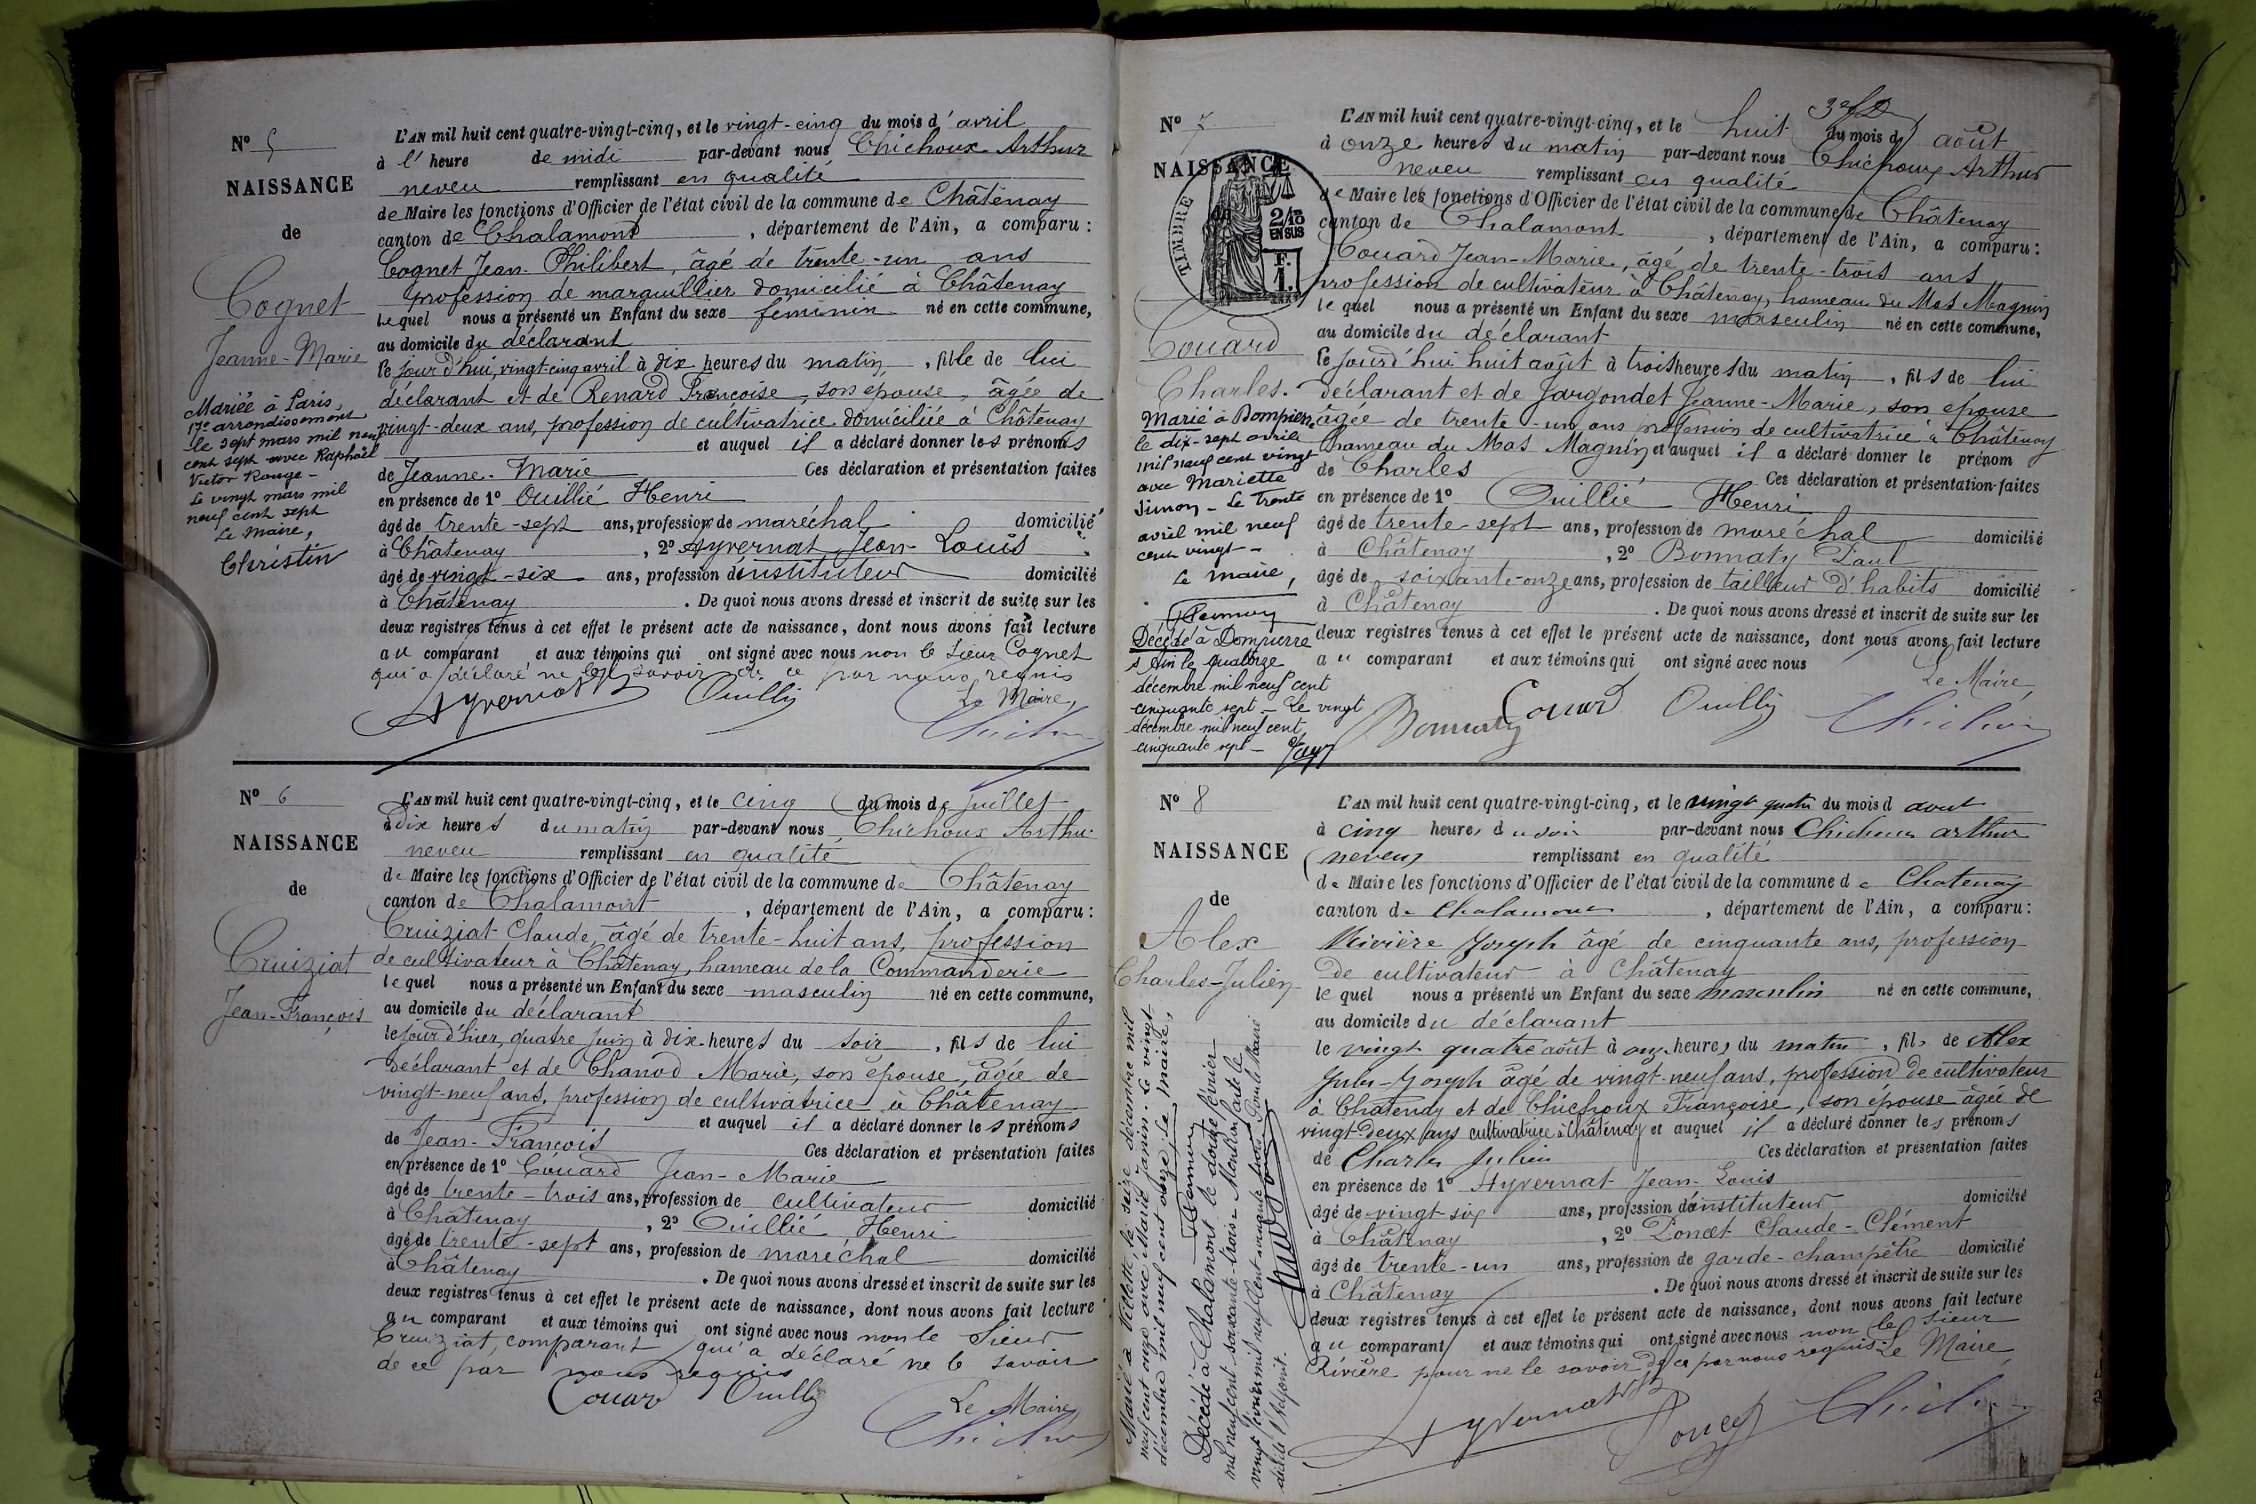 N° 5
NAISSANCE
de
Cognet
Jeanne-Marie
Mariée à Paris,
17e arrondissement
le sept mars mil neuf
cent sept avec Raphaël
Victor Rouge -
Le vingt mars mil
neuf cent sept
Le Maire,
Christin
L'AN mil huit cent quatre-vingt-cinq, et le vingt-cinq du mois d'avril
à l' heure de midi par-devant nous Chichoux Arthur
neveu remplissant en qualité
de Maire les fonctions d'Officier de l'état civil de la commune de Châtenay
canton de Chalamont, département de l'Ain, a comparu:
Cognet Jean-Philibert, âgé de trente-un ans
profession de marguillier domicilié à Châtenay
lequel nous a présenté un Enfant du sexe féminin né en cette commune,
au domicile du déclarant
le jour d'hui, vingt-cinq avril à dix heures du matin, fille de lui
déclarant et de Renard Françoise, son épouse, âgée de
vingt-deux ans, profession de cultivatrice domiciliée à Châtenay
et auquel il a déclaré donner les prénoms
de Jeanne-Marie Ces déclaration et présentation faites
en présence de 1° Ouillié Henri
âgé de trente-sept ans, profession de maréchal domicilié
à Châtenay, 2° Ayvernat Jean-Louis
âgé de vingt-six ans, profession d'instituteur domicilié
à Châtenay. De quoi nous avons dressé et inscrit de suite sur les
deux registres tenus à cet effet le présent acte de naissance, dont nous avons fait lecture
au comparant et aux témoins qui ont signé avec nous non le sieur Cognet
qui a déclaré ne le savoir de ce par nous requis
Ayvernat Ouillié Le Maire,
N° 6
NAISSANCE
de
Cruiziat
Jean-François
L'AN mil huit cent quatre-vingt-cinq, et le cinq du mois de juillet
à dix heures du matin par-devant nous Chichoux Arthur
neveu remplissant en qualité
de Maire les fonctions d'Officier de l'état civil de la commune de Châtenay
canton de Chalamont, département de l'Ain, a comparu:
Cruiziat Claude, âgé de trente-huit ans, profession
de cultivateur à Châtenay, hameau de la Commanderie
lequel nous a présenté un Enfant du sexe masculin né en cette commune,
au domicile du déclarant
le jour d'hier, quatre juin à dix heures du soir, fils de lui
déclarant et de Chanod Marie, son épouse, âgée de
vingt-neuf ans, profession de cultivatrice à Châtenay
et auquel il a déclaré donner les prénoms
de Jean-François Ces déclaration et présentation faites
en présence de 1° Couard Jean-Marie
âgé de trente-trois ans, profession de cultivateur domicilié
à Châtenay, 2° Ouillié Henri
âgé de trente-sept ans, profession de maréchal domicilié
à Châtenay. De quoi nous avons dressé et inscrit de suite sur les
deux registres tenus à cet effet le présent acte de naissance, dont nous avons fait lecture
au comparant et aux témoins qui ont signé avec nous non le Sieur
Cruiziat, comparant qui a déclaré ne le savoir
de ce par nous requis
Couard Ouillié Le Maire
N° 7
NAISSANCE
TIMBRE
2/10 EN SUS
F. 1.
Couard
Charles.
Marié à Dompierre
le dix-sept avril
mil neuf cent vingt
avec Mariette
Simon - Le trente
avril mil neuf
cent vingt -
Le maire,
Décédé à Dompierre
s/Ain le quatorze
décembre mil neuf cent
cinquante sept - Le vingt
décembre mil neuf cent
cinquante sept -
L'AN mil huit cent quatre-vingt-cinq, et le huit du mois d'août
à onze heures du matin par-devant nous Chichoux Arthur
neveu remplissant en qualité
de Maire les fonctions d'Officier de l'état civil de la commune de Châtenay
canton de Chalamont, département de l'Ain, a comparu:
Couard Jean-Marie, âgé de trente-trois ans
profession de cultivateur à Châtenay, hameau du Mas Magnin
lequel nous a présenté un Enfant du sexe masculin né en cette commune,
au domicile du déclarant
le jourd'hui huit août à trois heures du matin, fils de lui
déclarant et de Jargondet Jeanne-Marie, son épouse
âgée de trente-un ans profession de cultivatrice à Châtenay
hameau du Mas Magnin et auquel il a déclaré donner le prénom
de Charles Ces déclaration et présentation faites
en présence de 1° Ouillié Henri
âgé de trente-sept ans, profession de maréchal domicilié
à Châtenay, 2° Bonnaty Paul
âgé de soixante-onze ans, profession de tailleur d'habits domicilié
à Châtenay. De quoi nous avons dressé et inscrit de suite sur les
deux registres tenus à cet effet le présent acte de naissance, dont nous avons fait lecture
au comparant et aux témoins qui ont signé avec nous
Le Maire
Bonnaty Couard Ouillié
N° 8
NAISSANCE
de
Alex
Charles-Julien
Marié à Villette le seize décembre mil
neuf cent onze avec Marie Janin. Le vingt
décembre mil neuf cent onze. Le Maire,
Décédé à Chalamont le douze février
mil neuf cent soixante-trois - Mention faite le
vingt février mil neuf cent soixante trois
L'AN mil huit cent quatre-vingt-cinq, et le vingt quatre du mois d aout
à cinq heures du soir par-devant nous Chichoux arthur
neveu remplissant en qualité
de Maire les fonctions d'Officier de l'état civil de la commune de Chatenay
canton de Chalamont, département de l'Ain, a comparu:
Rivière Joseph âgé de cinquante ans, profession
de cultivateur à Châtenay
lequel nous a présenté un Enfant du sexe masculin né en cette commune,
au domicile du déclarant
le vingt quatre août à onze heures du matin, fils de Alex
Jules-Joseph âgé de vingt-neuf ans, profession de cultivateur
à Châtenay et de Chichoux Françoise, son épouse âgée de
vingt-deux ans cultivatrice à Châtenay et auquel il a déclaré donner les prénoms
de Charles Julien Ces déclaration et présentation faites
en présence de 1° Ayvernat Jean-Louis
âgé de vingt-six ans, profession d'instituteur domicilié
à Châtenay, 2° Poncet Claude-Clément
âgé de trente-un ans, profession de garde-champêtre domicilié
à Châtenay. De quoi nous avons dressé et inscrit de suite sur les
deux registres tenus à cet effet le présent acte de naissance, dont nous avons fait lecture
au comparant et aux témoins qui ont signé avec nous non le sieur
Rivière pour ne le savoir de ce par nous requis. Le Maire
Ayvernat Poncet